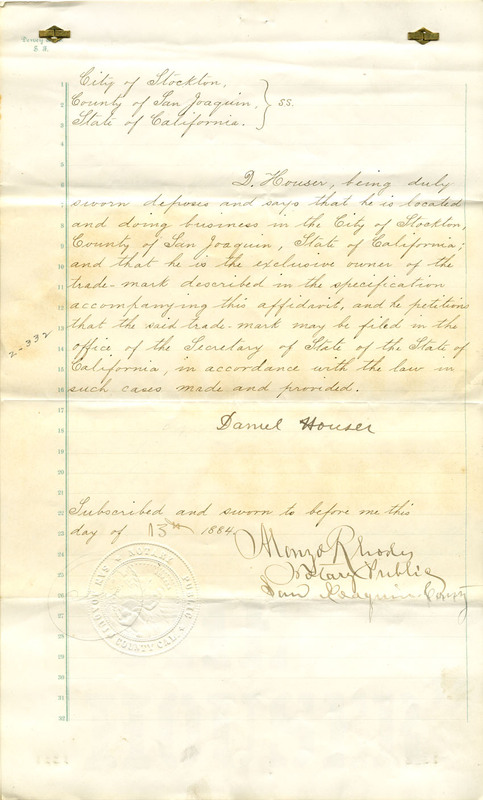 City of Stockton,
County of San Joaquin, } ss.
State of California.
D. Houser, being duly
sworn deposes and says that he is located
and doing business in the City of Stockton,
County of San Joaquin, State of California;
and that he is the exclusive owner of the
trade-mark described in the specification
accompanying this affidavit, and he petitions
that the said trade-mark may be filed in the
office of the Secretary of State of the State of
California, in accordance with the law in
such cases made and provided.
Daniel Houser
Subscribed and sworn to before me this
day of 13th 1884.
Alonzo Rhodes
Notary Public
San Joaquin County
2-332
1
2
3
4
5
6
7
8
9
10
11
12
13
14
15
16
17
18
19
20
21
22
23
24
25
26
27
28
29
30
31
32
NOTARY PUBLIC
COUNTY CAL.